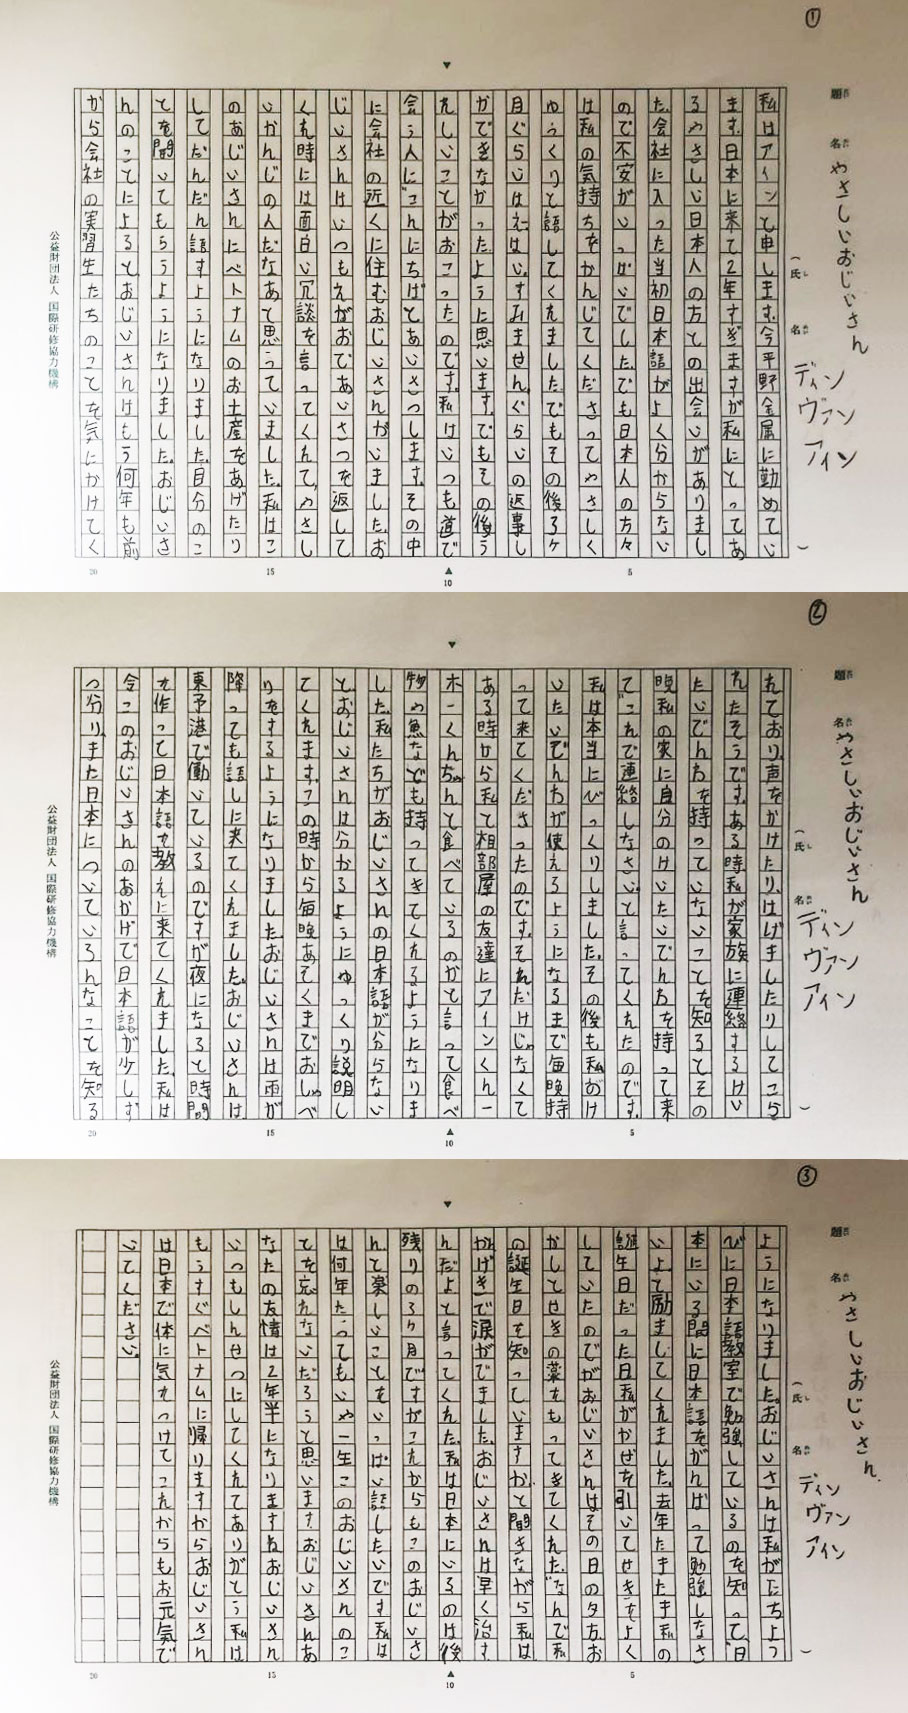 ①
題名
やさしいおじいさん
(氏名
ディン
ヴァン
アイン
)
私はアインと申します。今平野金属に勤めてい
ます。日本に来て2年すぎますが私にとってあ
るやさしい日本人の方との出会いがありまし
た。会社に入った当初日本語がよく分からない
ので不安がいっぱいでした。でも日本人の方々
は私の気持ちをかんじてくださってやさしく
ゆっくりと話してくれました。でもその後3ヶ
月ぐらいはえはい。すみません。ぐらいの返事し
かできなかったように思います。でもその後う
れしいことがおこったのです。私はいつも道で
会う人に"こんにちは"とあいさつします。その中
に会社の近くに住むおじいさんがいました。お
じいさんはいつもえがおであいさつを返して
くれ時には面白い冗談を言ってくれて、やさし
いかんじの人だなあと思っていました。私はこ
のおじいさんにベトナムのお土産をあげたり
してだんだん話すようになりました。自分のこ
とを聞いてもらうようになりました。おじいさ
んのことによるとおじいさんはもう何年も前
から会社の実習生たちのことを気にかけてく
5
10
15
20
公益財団法人 国際研修協力機構
②
題名
やさしいおじいさん
(氏名
ディン
ヴァン
アイン
)
れており、声をかけたり、はげましたりしてこら
れたそうです。ある時私が家族に連絡するけい
たいでんわを持っていないことを知るとその
晩私の家に自分のけいたいでんわを持って来
て"これで連絡しなさい。"と言ってくれたのです。
私は本当にびっくりしました。その後も私がけ
いたいでんわが使えるようになるまで毎晩持
って来てくださったのです。それだけじゃなくて
ある時から私と相部屋の友達にアインくん一
ホーくんちゃんと食べているのかと言って食べ
物や魚なども持ってきてくれるようになりま
した。私たちがおじいさんの日本語が分らない
とおじいさんは分かるようにゆっくり説明し
てくれます。この時から毎晩おそくまでおしゃべ
りをするようになりました。おじいさんは雨が
降っても話しに来てくれました。おじいさんは
東予港で働いているのですが夜になると時間
を作って日本語を教えに来てくれました。私は
今このおじいさんのおかげで日本語が少しず
つ分り、また日本についていろんなことを知る
5
10
15
20
公益財団法人 国際研修協力機構
③
題名
やさしいおじいさん
(氏名
ディン
ヴァン
アイン
)
ようになりました。おじいさんは私がにちよう
びに日本語教室で勉強しているのを知って、"日
本にいる間に日本語をがんばって勉強しなさ
いよ"て励ましてくれました。去年たまたま私の
誕生日だった日私がかぜを引いてせきをよく
していたのですがおじいさんはその日の夕方、お
かしとせきの薬をもってきてくれた。"なんで私
の誕生日を知っていますか。"と聞きながら私は
かんげきで涙がでました。おじいさんは早く治す
んだよと言ってくれた。私は日本にいるのは後
残りの3ヶ月ですがこれからもこのおじいさ
んと楽しいことをいっぱい話したいです。私は
は何年たっても、いや一生このおじいさんのこ
とを忘れないだろうと思います。おじいさんあ
なたの友情は2年半になりますねおじいさん
いつもしんせつにしてくれてありがとう私は
もうすぐベトナムに帰りますからおじいさん
は日本で体に気をつけてこれからもお元気で
いてください。
5
10
15
20
公益財団法人 国際研修協力機構